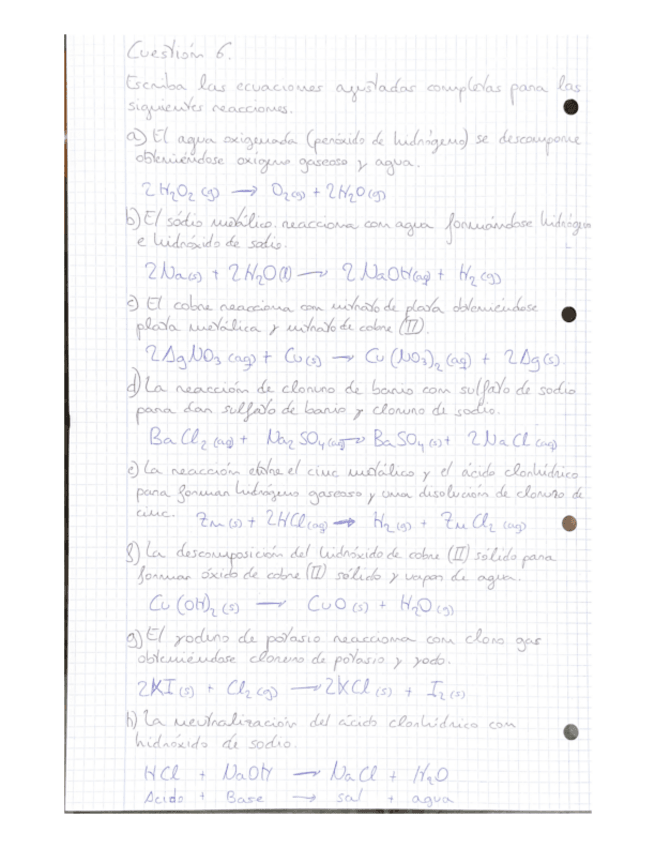 Cuestión 6.
Escriba las ecuaciones ajustadas completas para las
siguientes reacciones.
a) El agua oxigenada (peróxido de hidrógeno) se descompone
obteniéndose oxígeno gaseoso y agua.
2H₂O₂ (g) → O₂(g) + 2H₂O(g)
b) El sódio metálico reacciona con agua formándose hidrógeno
e hidróxido de sodio.
2Na(s) + 2H₂O(l) → 2NaOH(aq) + H₂(g)
c) El cobre reacciona con nitrato de plata obteniéndose
plata metálica y nitrato de cobre (II).
2AgNO₃ (aq) + Cu(s) → Cu(NO₃)₂ (aq) + 2Ag(s).
d) La reacción de cloruro de bario con sulfato de sodio
para dar sulfato de bario y cloruro de sodio.
BaCl₂(aq) + Na₂SO₄(aq) → BaSO₄(s) + 2NaCl(aq)
e) La reacción entre el cinc metálico y el ácido clorhídrico
para formar hidrógeno gaseoso y una disolución de cloruro de
cinc. Zn(s) + 2HCl(aq) → H₂(g) + ZnCl₂ (aq)
f) La descomposición del hidróxido de cobre (II) sólido para
formar óxido de cobre (II) sólido y vapor de agua.
Cu(OH)₂(s) → CuO(s) + H₂O(g)
g) El yoduro de potasio reacciona con cloro gas
obteniéndose cloruro de potasio y yodo.
2KI(s) + Cl₂(g) → 2KCl(s) + I₂(s)
h) La neutralización del ácido clorhídrico con
hidróxido de sodio.
HCl + NaOH → NaCl + H₂O
Acido + Base → sal + agua